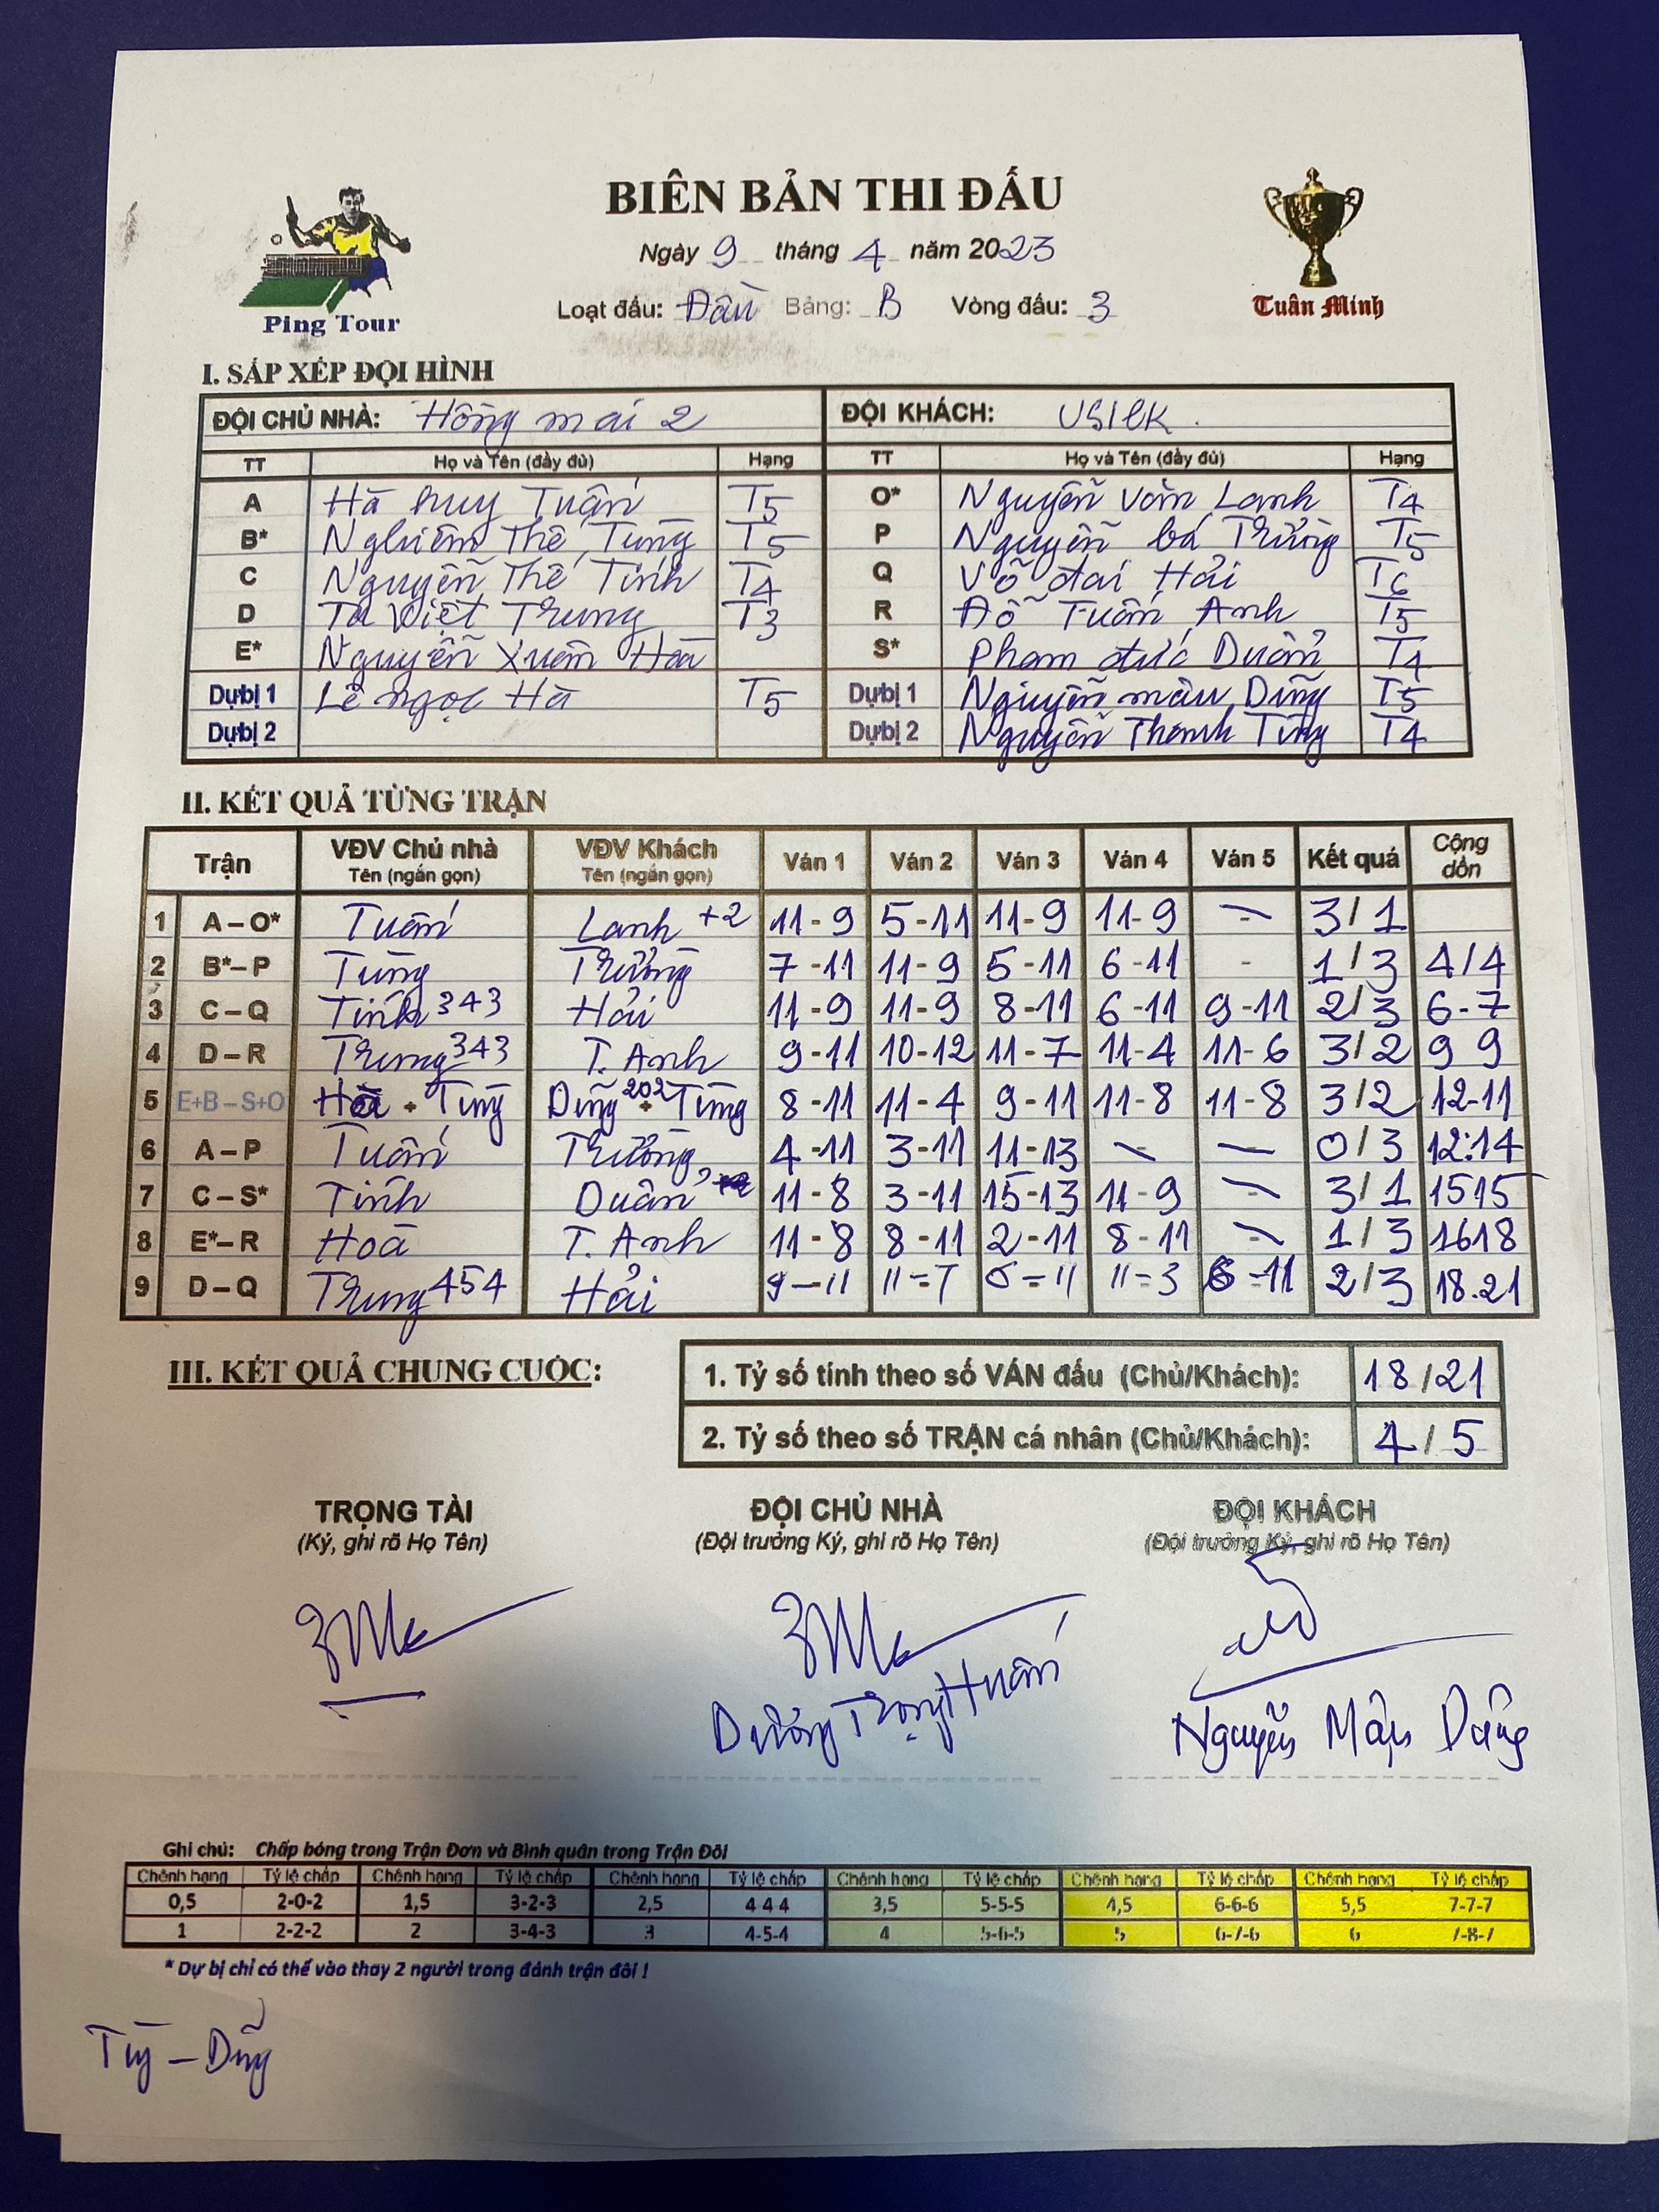 BIÊN BẢN THI ĐẤU
Ngày 9 tháng 4 năm 2023
Loạt đấu: Đầu Bảng: B Vòng đấu: 3
Ping Tour
Tuấn Minh
I. SẮP XẾP ĐỘI HÌNH
ĐỘI CHỦ NHÀ: Hồng mai 2 ĐỘI KHÁCH: USILK.
TT Họ và Tên (đầy đủ) Hạng TT Họ và Tên (đầy đủ) Hạng
A Hà huy Tuấn T5 O* Nguyễn Văn Lanh T4
B* Nghiêm Thế Tùng T5 P Nguyễn bá Trường T5
C Nguyễn Thế Tính T4 Q Võ đại Hải T6
D Tạ Việt Trung T3 R Đỗ Tuấn Anh T5
E* Nguyễn Xuân Hoà S* Phạm đức Duẩn T4
Dự bị 1 Lê ngọc Hà T5 Dự bị 1 Nguyễn mậu Dũng T5
Dự bị 2 Dự bị 2 Nguyễn Thanh Tùng T4
II. KẾT QUẢ TỪNG TRẬN
Trận VĐV Chủ nhà Tên (ngắn gọn) VĐV Khách Tên (ngắn gọn) Ván 1 Ván 2 Ván 3 Ván 4 Ván 5 Kết quả Cộng dồn
1 A – O* Tuấn Lanh +2 11-9 5-11 11-9 11-9 - 3/1
2 B* – P Tùng Trường 7-11 11-9 5-11 6-11 - 1/3 4/4
3 C – Q Tính 343 Hải 11-9 11-9 8-11 6-11 9-11 2/3 6-7
4 D – R Trung 343 T. Anh 9-11 10-12 11-7 11-4 11-6 3/2 9 9
5 E+B – S+O + Tùng Dũng 202 + Tùng 8-11 11-4 9-11 11-8 11-8 3/2 12-11
6 A – P Tuấn Trường 4-11 3-11 11-13 - - 0/3 12:14
7 C – S* Tính Duẩn 11-8 3-11 15-13 11-9 - 3/1 15 15
8 E* – R Hoà T. Anh 11-8 8-11 2-11 8-11 - 1/3 16 18
9 D – Q Trung 454 Hải 9-11 11-7 11 11-3 6-11 2/3 18.21
III. KẾT QUẢ CHUNG CUỘC:
1. Tỷ số tính theo số VÁN đấu (Chủ/Khách): 18/21
2. Tỷ số theo số TRẬN cá nhân (Chủ/Khách): 4/5
TRỌNG TÀI ĐỘI CHỦ NHÀ ĐỘI KHÁCH
(Ký, ghi rõ Họ Tên) (Đội trưởng Ký, ghi rõ Họ Tên) (Đội trưởng Ký, ghi rõ Họ Tên)
Dương Trọng Huấn
Nguyễn Mậu Dũng
Ghi chú: Chấp bóng trong Trận Đơn và Bình quân trong Trận Đôi
Chênh hạng Tỷ lệ chấp Chênh hạng Tỷ lệ chấp Chênh hạng Tỷ lệ chấp Chênh hạng Tỷ lệ chấp Chênh hạng Tỷ lệ chấp Chênh hạng Tỷ lệ chấp
0,5 2-0-2 1,5 3-2-3 2,5 4 4 4 3,5 5-5-5 4,5 6-6-6 5,5 7-7-7
1 2-2-2 2 3-4-3 3 4-5-4 4 5-6-5 5 6-7-6 6 7-8-7
* Dự bị chỉ có thể vào thay 2 người trong đánh trận đôi !
Tùg – Dũng